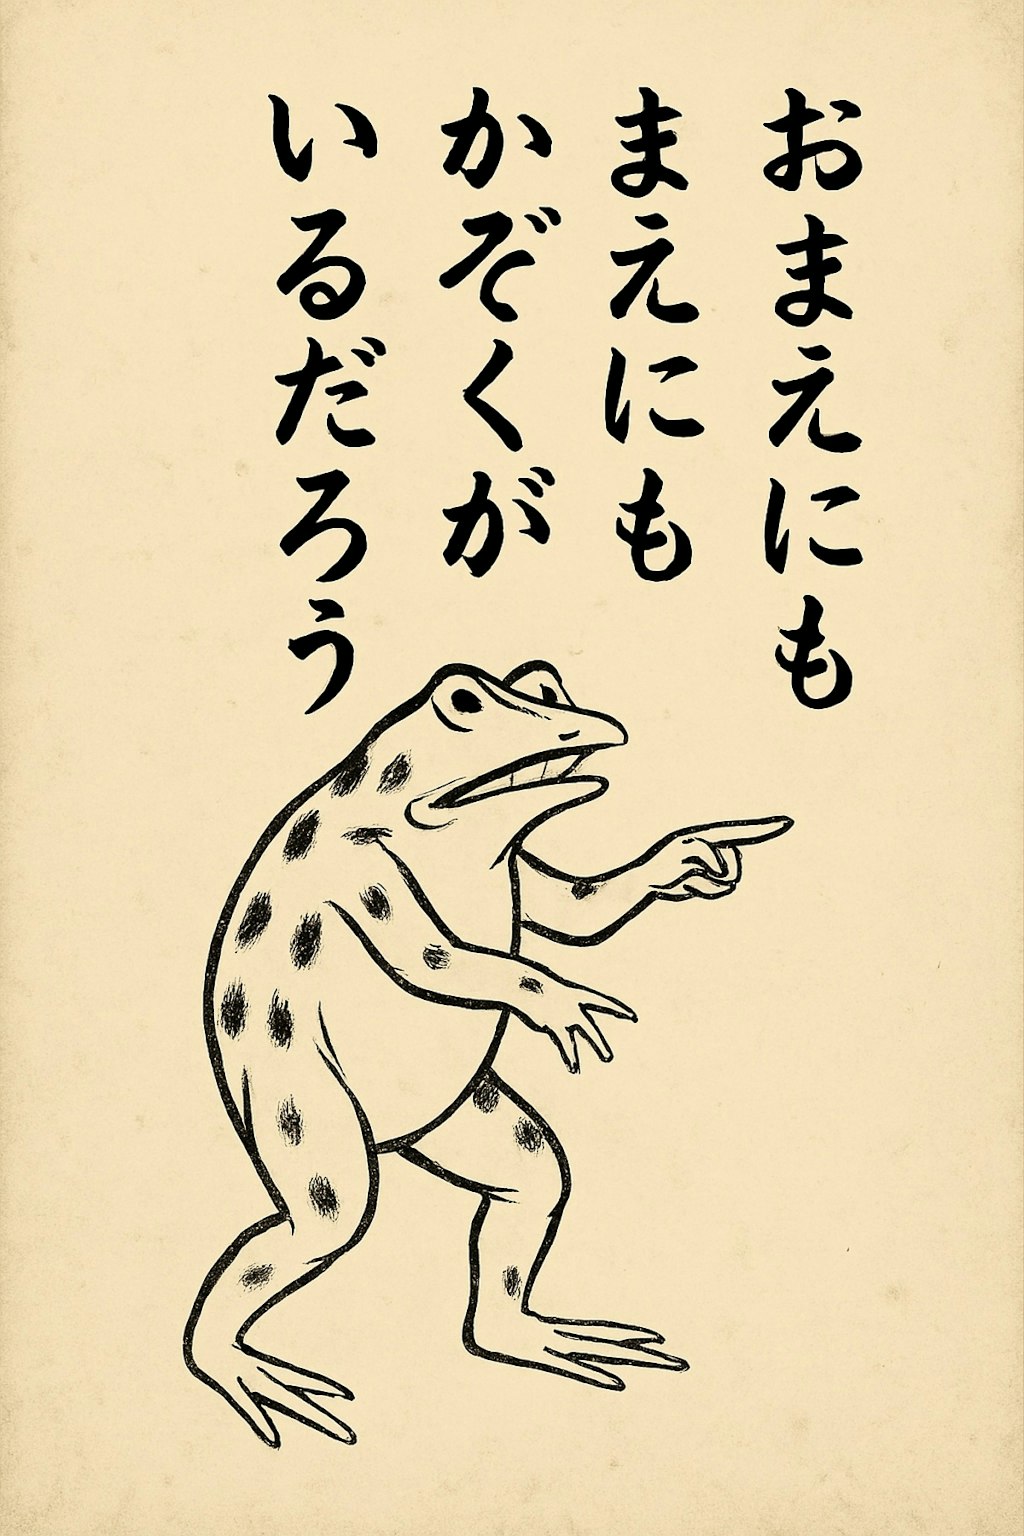 おまえにも
まえにも
かぞくが
いるだろう